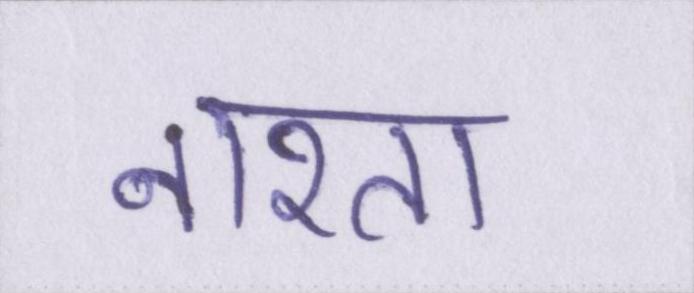 नाश्ता